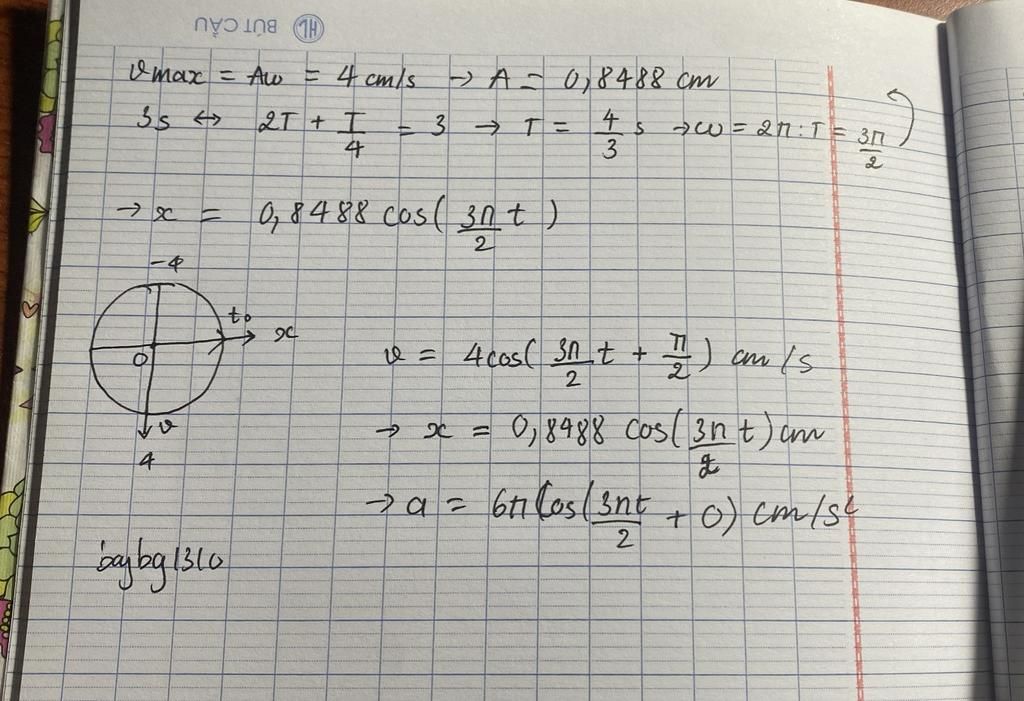 HL BÚT CẦU
vmax = Aω = 4 cm/s → A = 0,8488 cm
3s ↔ 2T + T/4 = 3 → T = 4/3 s → ω = 2π : T = 3π/2
→ x = 0,8488 cos( 3π/2 t )
-4
t₀
x
O
v
4
v = 4cos( 3π/2 t + π/2 ) cm/s
→ x = 0,8488 cos( 3π/2 t ) cm
→ a = 6π cos( 3πt/2 + 0) cm/s²
baybg1310